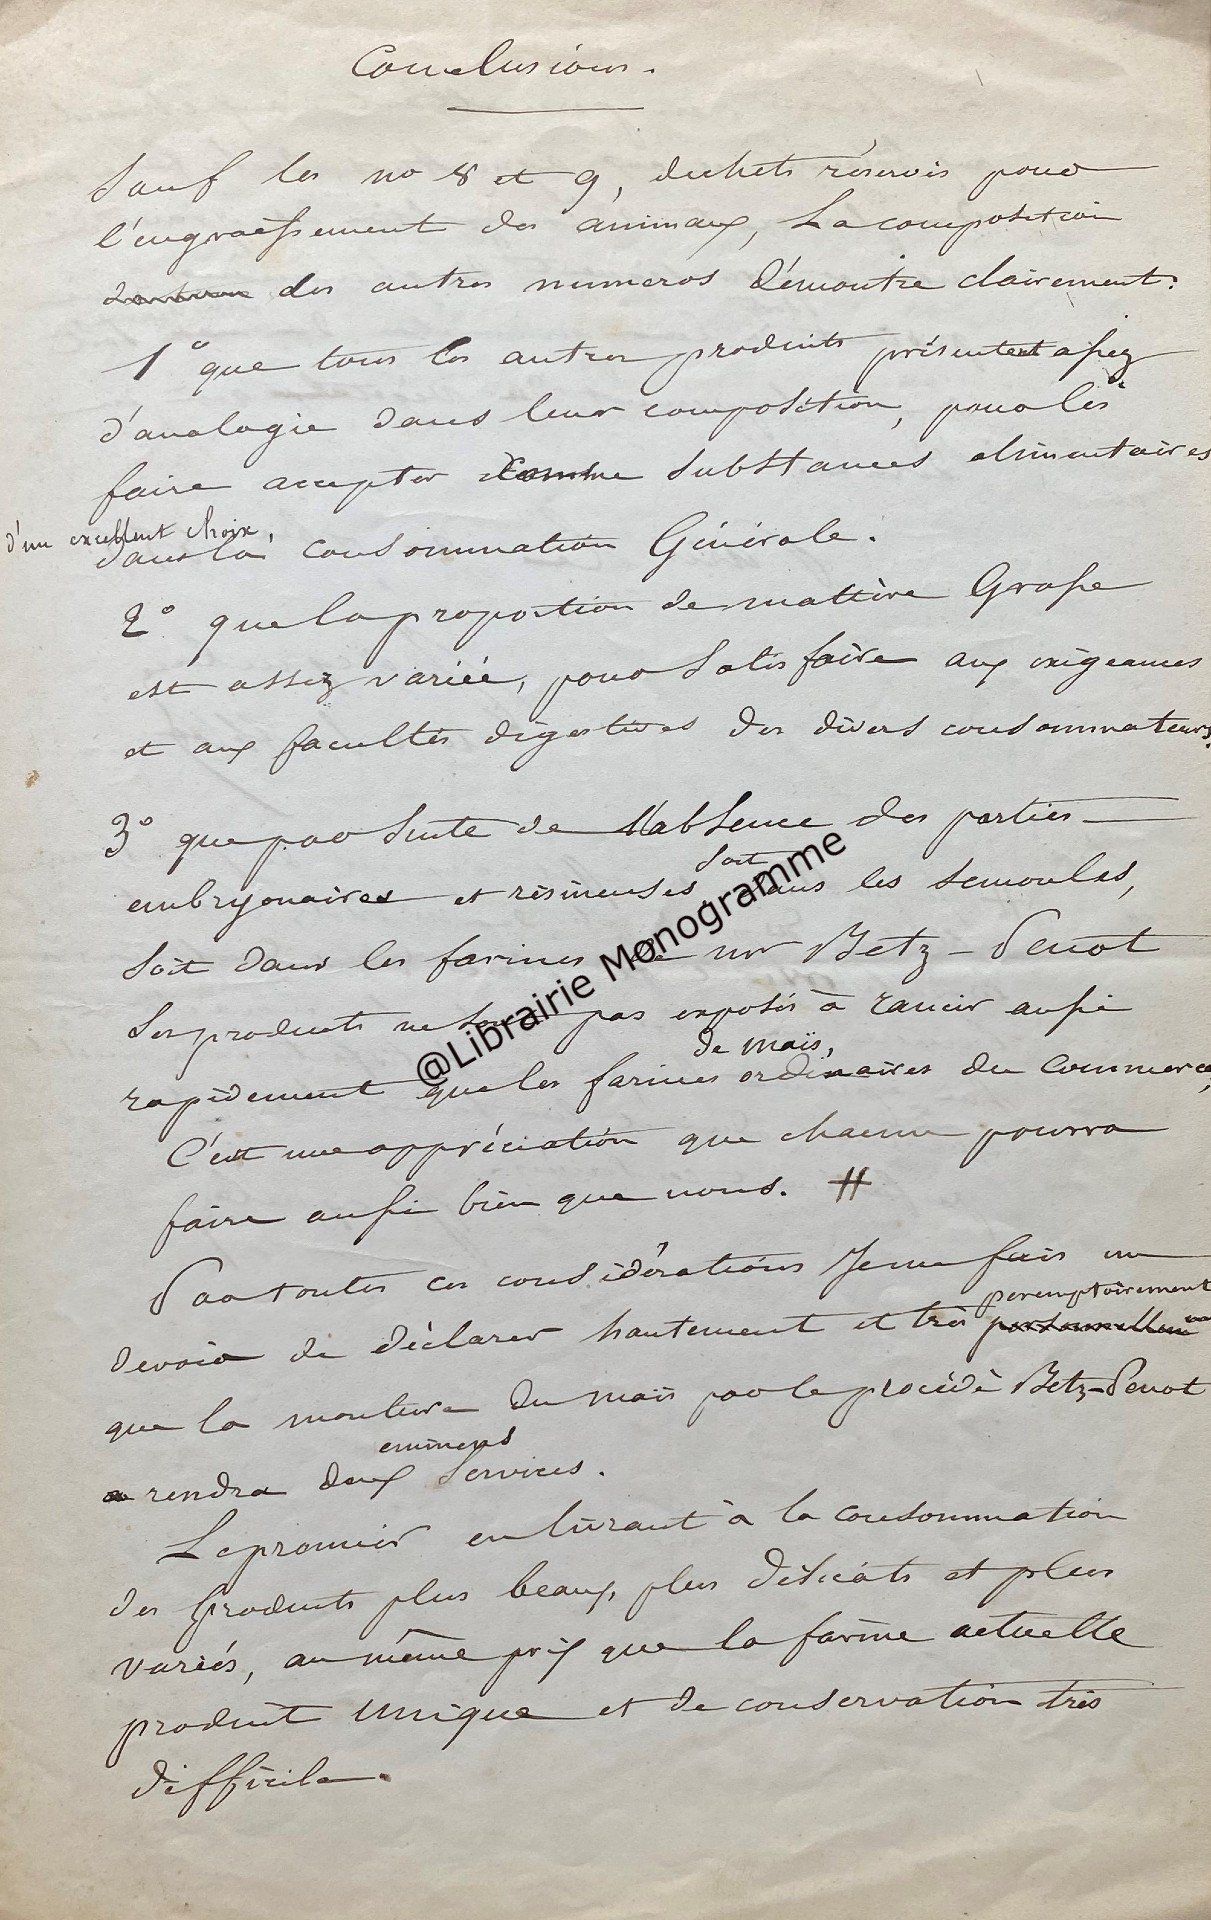 Conclusions.
Sauf les no 8 et 9, dechets réservés pour
l'engraissement des animaux, La composition
des autres numeros démontre clairement:
1° que tous les autres produits présentent assez
d'analogie dans leur composition, pour les
faire accepter comme substances alimentaires
d'un excellent choix,
dans la consommation Générale.
2° que la proportion de matière Grasse
est assez variée, pour satisfaire aux exigeances
et aux facultés digestives des divers consommateurs.
3° que par suite de l'absence des parties
embryonaires et résineuses soit dans les semoules,
soit dans les farines de mr Betz-Penot
Ses produits ne sont pas exposés à rancir aussi
rapidement que les farines de maïs, ordinaires du commerce,
C'est une appréciation que chacun pourra
faire aussi bien que nous. #
Par toutes ces considérations Je me fais un
devoir de déclarer hautement et très peremptoirement
que la mouture du maïs par le procédé Betz-Penot
rendra deux eminens services.
Le premier en livrant à la consommation
des produits plus beaux, plus délicats et plus
variés, au même prix que la farine actuelle
produit unique et de conservation très
difficile.
@Librairie Monogramme